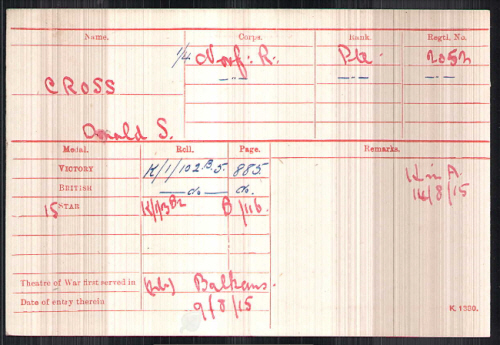 Name. Corps. Rank. Regtl. No.
1/4 Norf: R. Pte. 2052
—"— —"— —"—
CROSS
Donald S.
Medal. Roll. Page. Remarks.
VICTORY K/1/102.B.5. 885
BRITISH —do— do.
15 STAR K/1/3B2 B/116.
K in A.
14/8/15
Theatre of War first served in (2b) Balkans.
Date of entry therein 9/8/15
K. 1380.